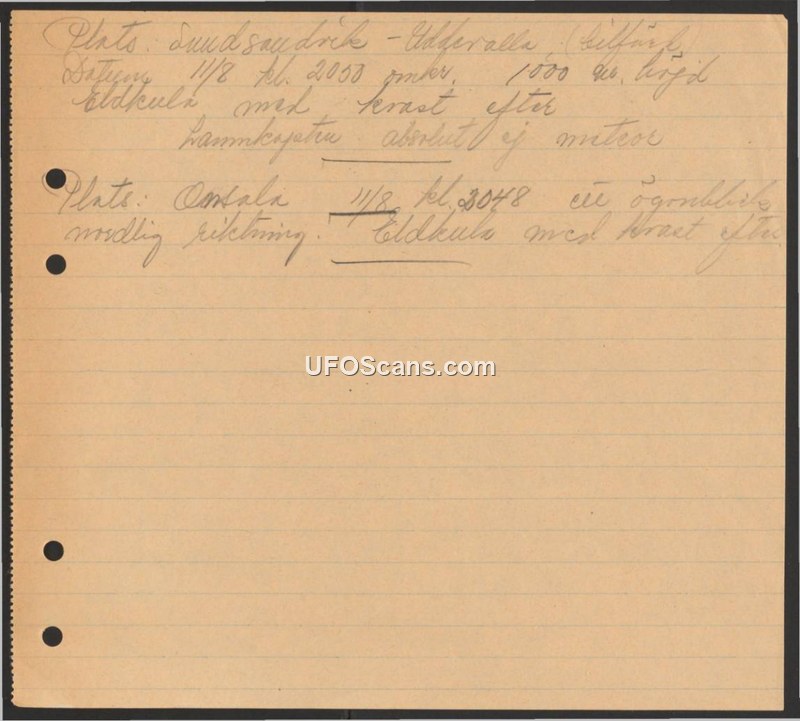 Plats: Sundsandvik - Uddevalla (bilfärd)
Datum 11/8 kl. 2050 omkr. 1000 m. höjd
Eldkula med kvast efter
absolut ej meteor
Plats: Onsala 11/8 kl. 2048 ett ögonblick
nordlig riktning. Eldkula med kvast efter
UFOScans.com